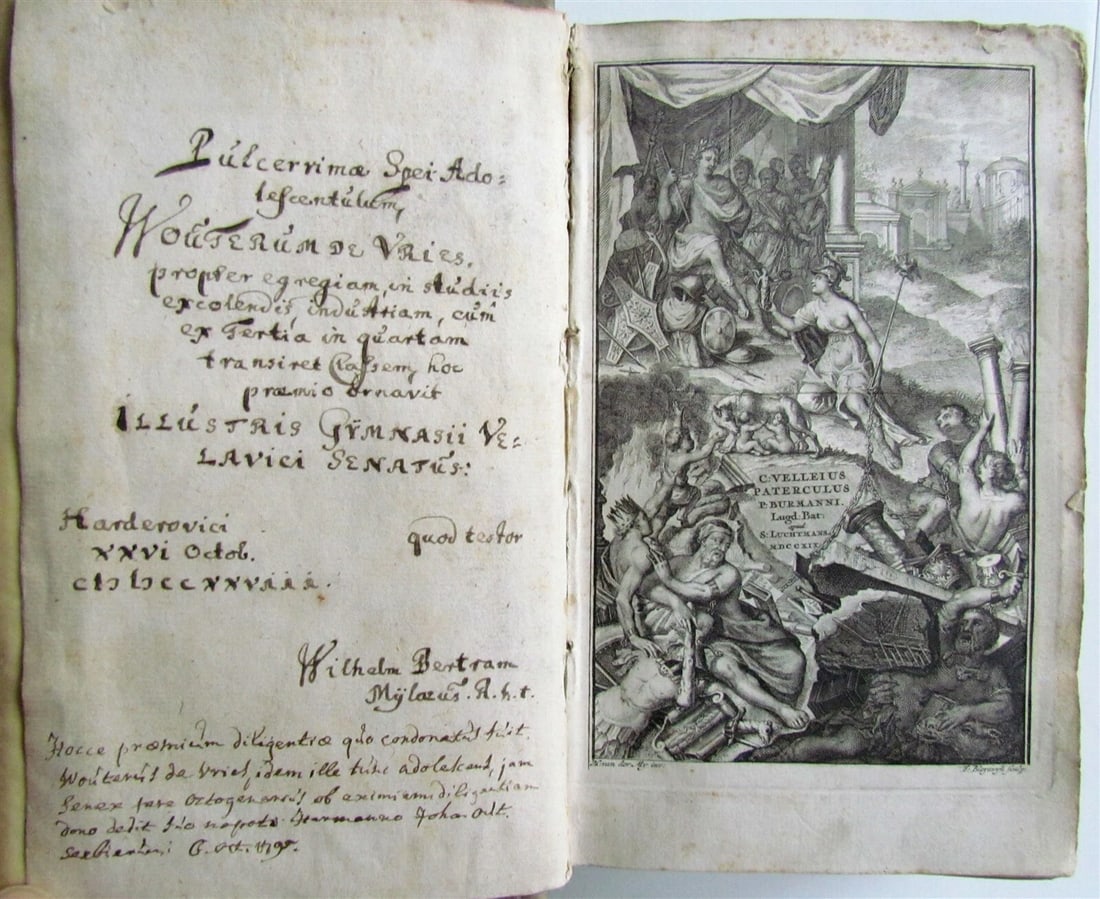 Pulcerrimæ Spei Ado=
lescentulum,
WOUTERUM DE VRIES.
propter egregiam, in studiis
excolendis, industriam, cum
ex Tertia in quartam
transiret Classem, hoc
præmio ornavit
ILLUSTRIS GŸMNASII VE-
LAVICI SENATUS:
Harderovici
XXVI Octob.
CIↃ IↃCCXXVIII.
quod testor
Wilhelm Bertram
Mÿlæus. R. h. t.
Hocce præmium diligentiæ quo condonatus fuit
Wouterus de Vries, idem ille tunc adolescens, jam
Senex fere Octogenarius ob eximiam diligentiam
dono dedit suo nepoti Joha
C: VELLEIUS
PATERCULUS
P. BURMANNI.
Lugd. Bat:
apud
S: LUCHTMANS.
MDCCXIX.